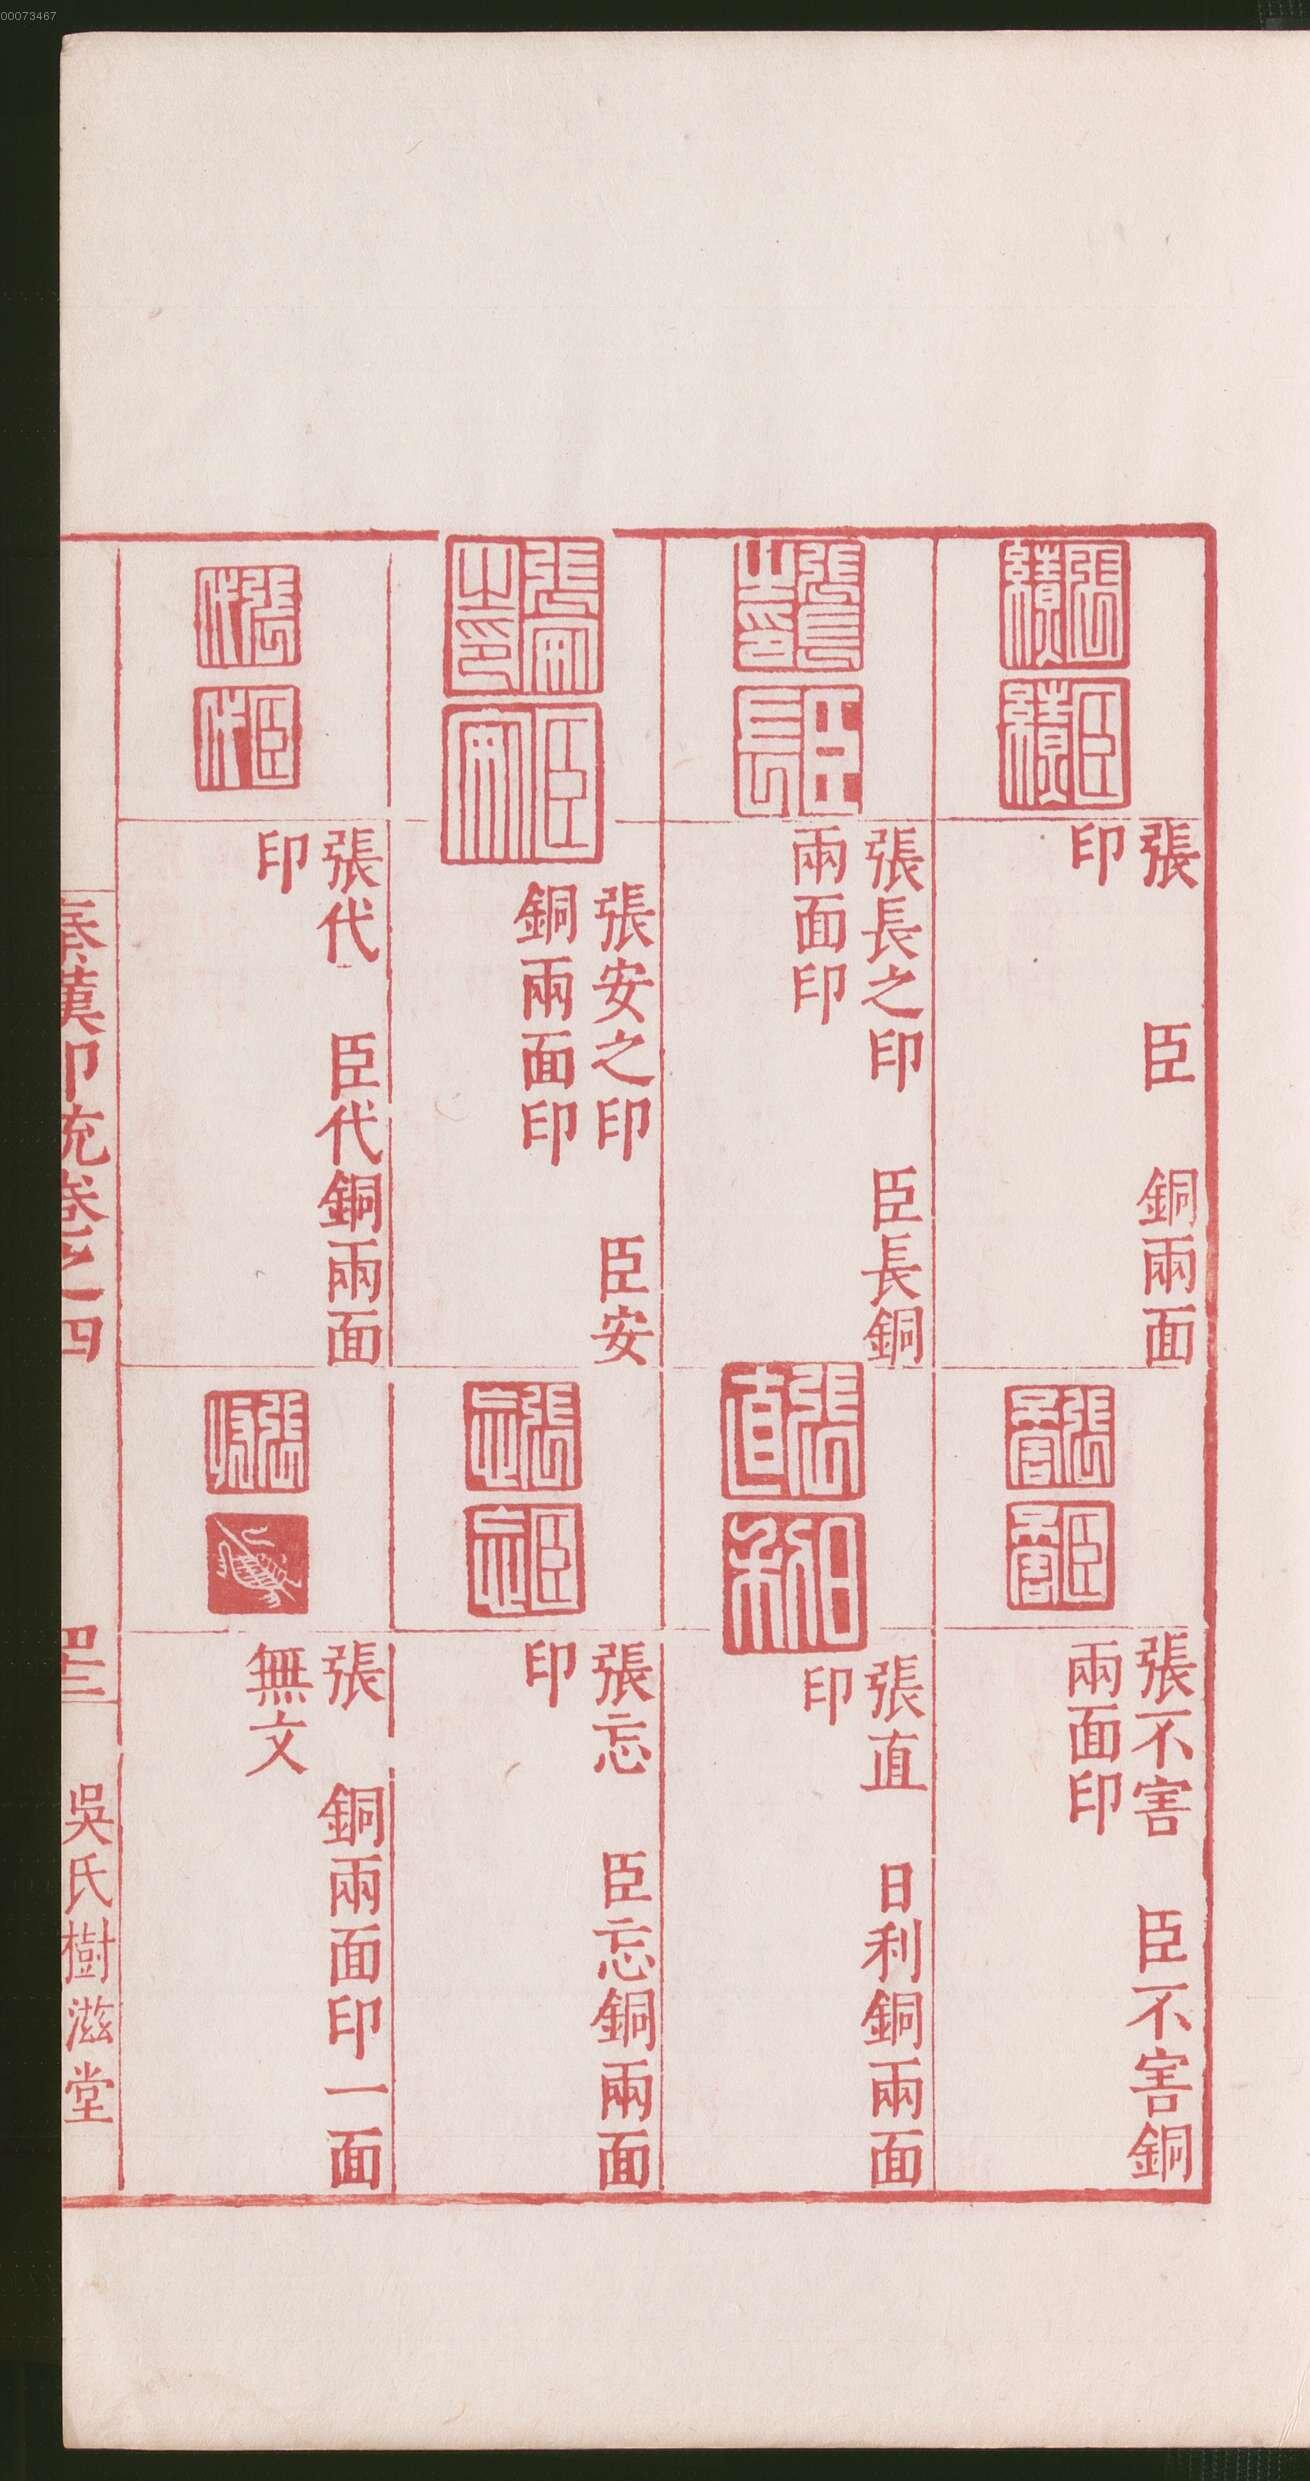 00073467
張　　臣　銅兩面
印
張長之印　臣長銅
兩面印
張安之印　臣安
銅兩面印
張代　臣代銅兩面
印
張不害　臣不害銅
兩面印
張直　日利銅兩面
印
張忘　臣忘銅兩面
印
張　銅兩面印一面
無文
秦漢印統卷之四
四十二
吳氏樹滋堂